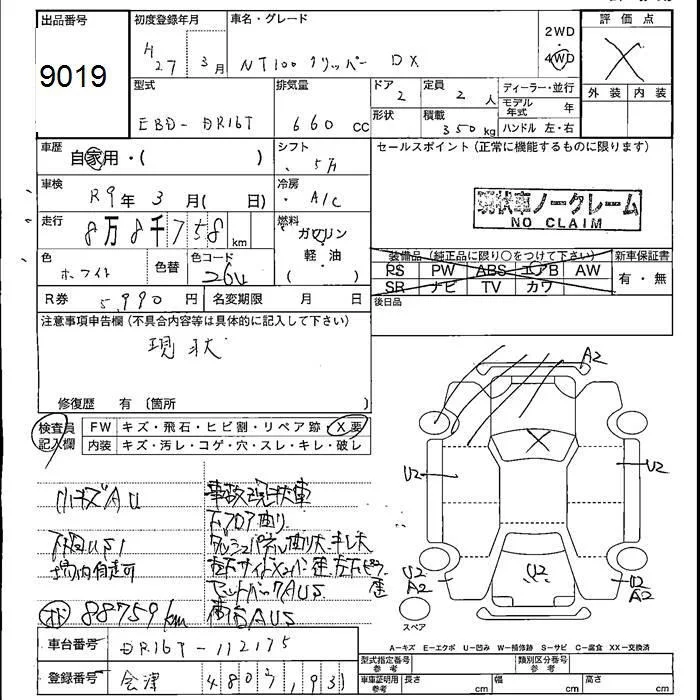 出品番号
9019
初度登録年月
H27 3月
車名・グレード
NT100 クリッパー DX
2WD
4WD
評価点
X
外装 内装
型式
EBD-DR16T
排気量
660 cc
ドア
2
定員
2 人
形状
積載
350 kg
ディーラー・並行
モデル年式 年
ハンドル 左・右
車歴
自家用・( )
シフト
5万
セールスポイント(正常に機能するものに限ります)
車検
R9年 3月( 日)
冷房
A/C
現状車ノークレーム
NO CLAIM
走行
8万8千758km
燃料
ガソリン
軽油
( )
色
ホワイト
色替
色コード
26U
装備品(純正品に限り○をつけて下さい)
PS PW ABS エアB AW
SR ナビ TV カワ
新車保証書
有・無
後日品
R券 5,990円
名変期限 月 日
注意事項申告欄(不具合内容等は具体的に記入して下さい)
現状
修復歴 有〔箇所 〕
検査員記入欄
FW キズ・飛石・ヒビ割・リペア跡・X要
内装 キズ・汚レ・コゲ・穴・スレ・キレ・破レ
小キズAU
事故現状車
下フロア曲り
場内自走可
88759km
A2
U2
U2
U2
A2
U2
U2
A2
スペア
A-キズ E-エクボ U-凹み W-補修跡 S-サビ C-腐食 XX-交換済
車台番号
DR16T-112175
登録番号
会津 480
型式指定番号 参考
類別区分番号 参考
車庫証明用 参考
長さ cm
幅 cm
高さ cm